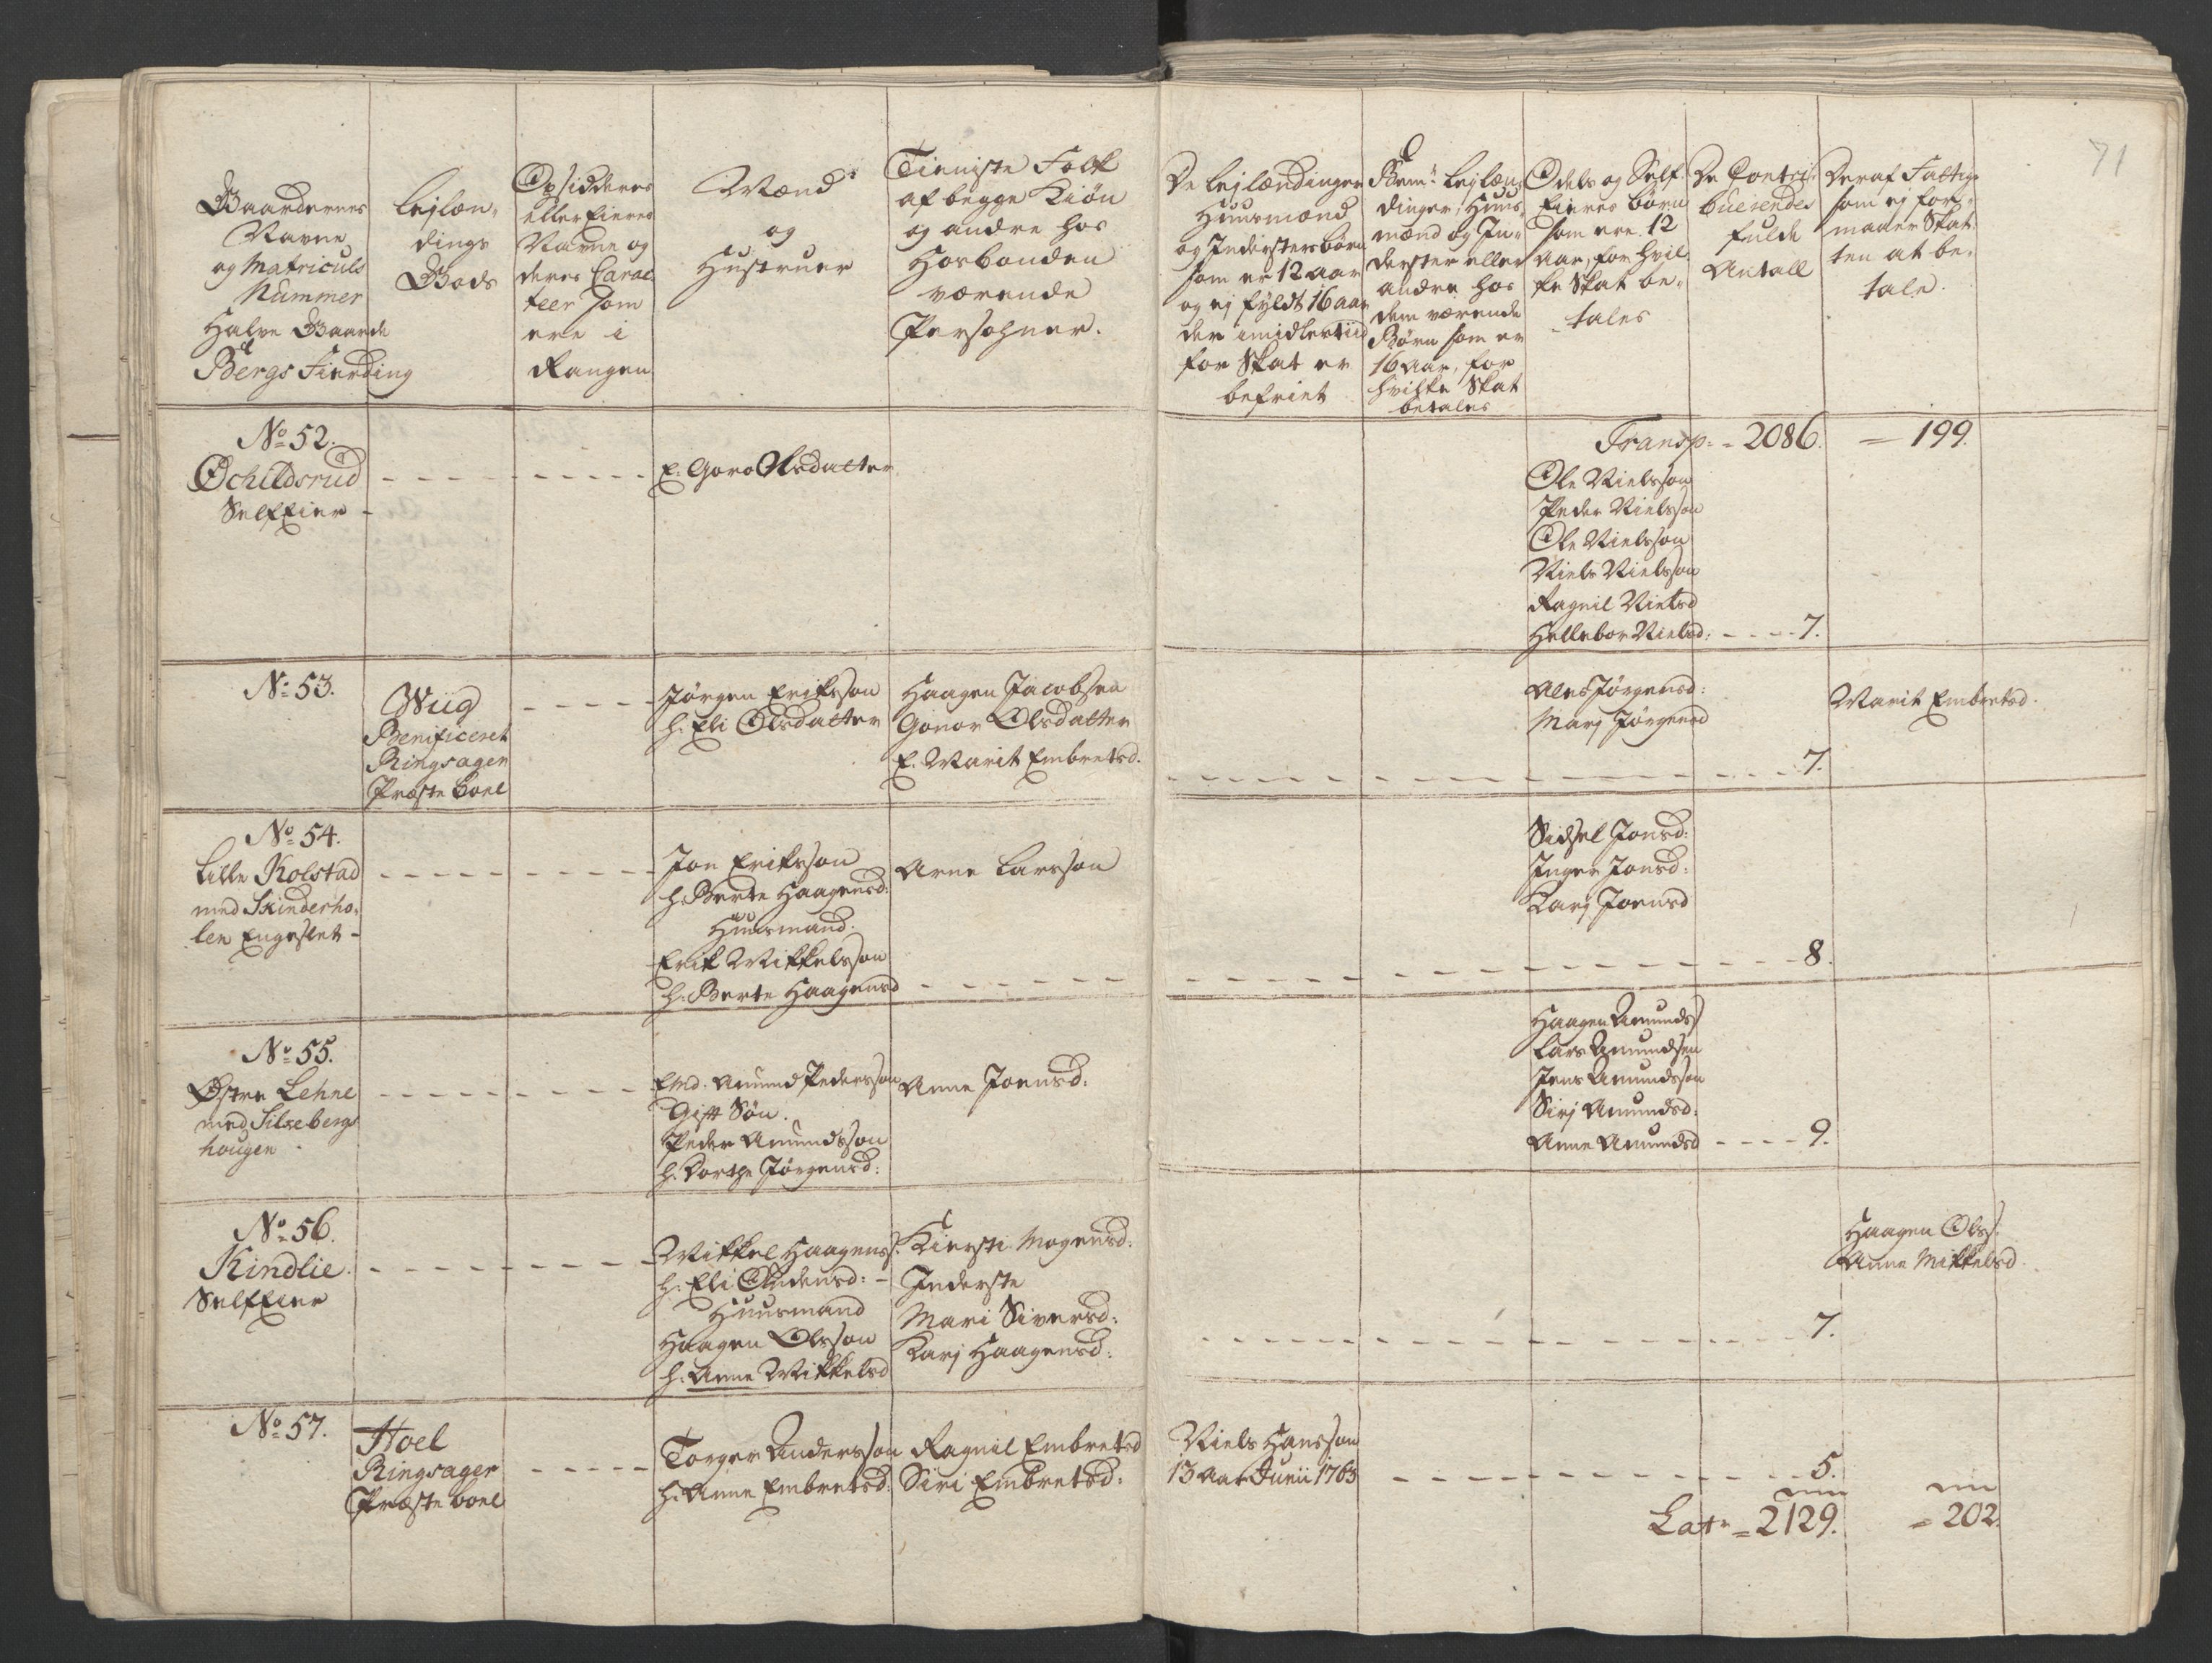 71
Gaardernes
Navne
og Matriculs
Nummer
Halve Gaarde
Bergs Fierding
Lejlæn-
dings
Gods
Opsidderes
eller Eieres
Navne og
deres Carac
teer som
ere i
Rangen
Mænd
og
Hustruer
Tieniste Folk
af begge Kiøn
og andre hos
Hosbonden
værende
Persohner.
De Lejlændinger
Huusmænd
og Inderstersbørn
som er 12 aar
og ej fyldt 16 aar
der imidlertiid
for Skat er
befriet
Bem:te Lejlæn-
dinger, Huus-
mænd og In-
derster eller
andre hos
dem værende
Børn som er
16 aar, for
hvilke Skat
betales
Odels og Self-
Eieres børn
som ere 12
Aar, for hvil-
ke Skat be-
tales
De Contri-
buerendes
fulde
Antall
Deraf Fattige
som ej for-
maaer Skat-
ten at be-
tale.
No 52.
Ochildsrud
SelfEier -
E. Goro Olsdatter
Transp: - 2086. = 199.
Ole Nielsson
Peder Nielsson
Ole Nielsson
Niels Nielsson
Ragnil Nielsd
Hellebor Nielsd: - - - - 7.
No 53.
Wiig
Benificeret
Ringsager
Præste boel
Jørgen Eriksson
h. Eli Olsdatter
Haagen Jacobsen
Gonor Olsdatter
E. Marit Embretsd.
Ales Jørgensd:
Marj Jørgensd
7.
Marit Embretsd.
No 54.
Lille Kolstad
med Skinderho-
len Engeslet -
Jon Eriksson
h. Berte Haagensd:
Huusmand.
Erik Mikkelsson
h: Berte Haagensd
Arne Larsson
Sidsel Jonsd:
Inger Jonsd:
Karj Joensd
8.
No 55.
Østre Lehne
med Silkebergs
hougen
Emd. Amund Pedersson
Gift Søn.
Peder Amundsson
h. Dorthe Jørgensd:
Anne Joensd:
Haagen Amunds
Lars Amundsen
Jens Amundsson
Sirj Amundsd:
Anne Amundsd - - - - 9.
No 56.
Kindlie.
SelfEier
Mikkel Haagens:
h: Eli Endensd: -
Huusmand
Haagen Olsson
h: Anne Mikkelsd
Kiersti Mogensd:
Inderste
Mari Siversd:
Karj Haagensd:
7.
Haagen Ols:
Anne Mikkelsd
No 57.
Hoel
Ringsager
Præste boel
Torger Andersson
h: Anne Embretsd:
Ragnil Embretsd
Siri Embretsd:
Niels Hansson
13 Aar Junii 1763
5.
Lat: = 2129. = 202.